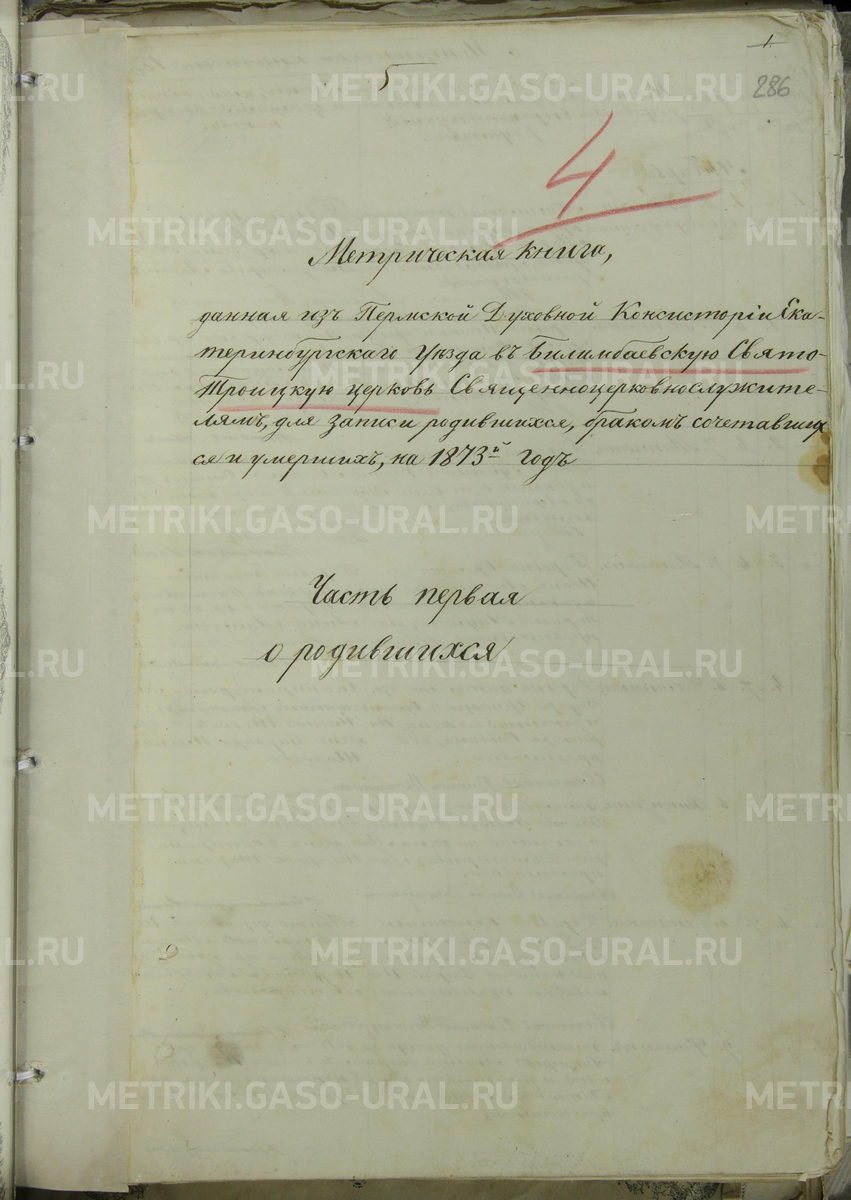 1.
286
5
4
Метрическая книга,
данная изъ Пермской Духовной Консисторіи Ека-
теринбургскаго уѣзда въ Билимбаевскую Свято-
Троицкую церковь Священноцерковнослужите-
лямъ, для записи родившихся, бракомъ сочетавших
ся и умершихъ, на 1873й годъ
Часть первая
о родившихся
METRIKI.GASO-URAL.RU